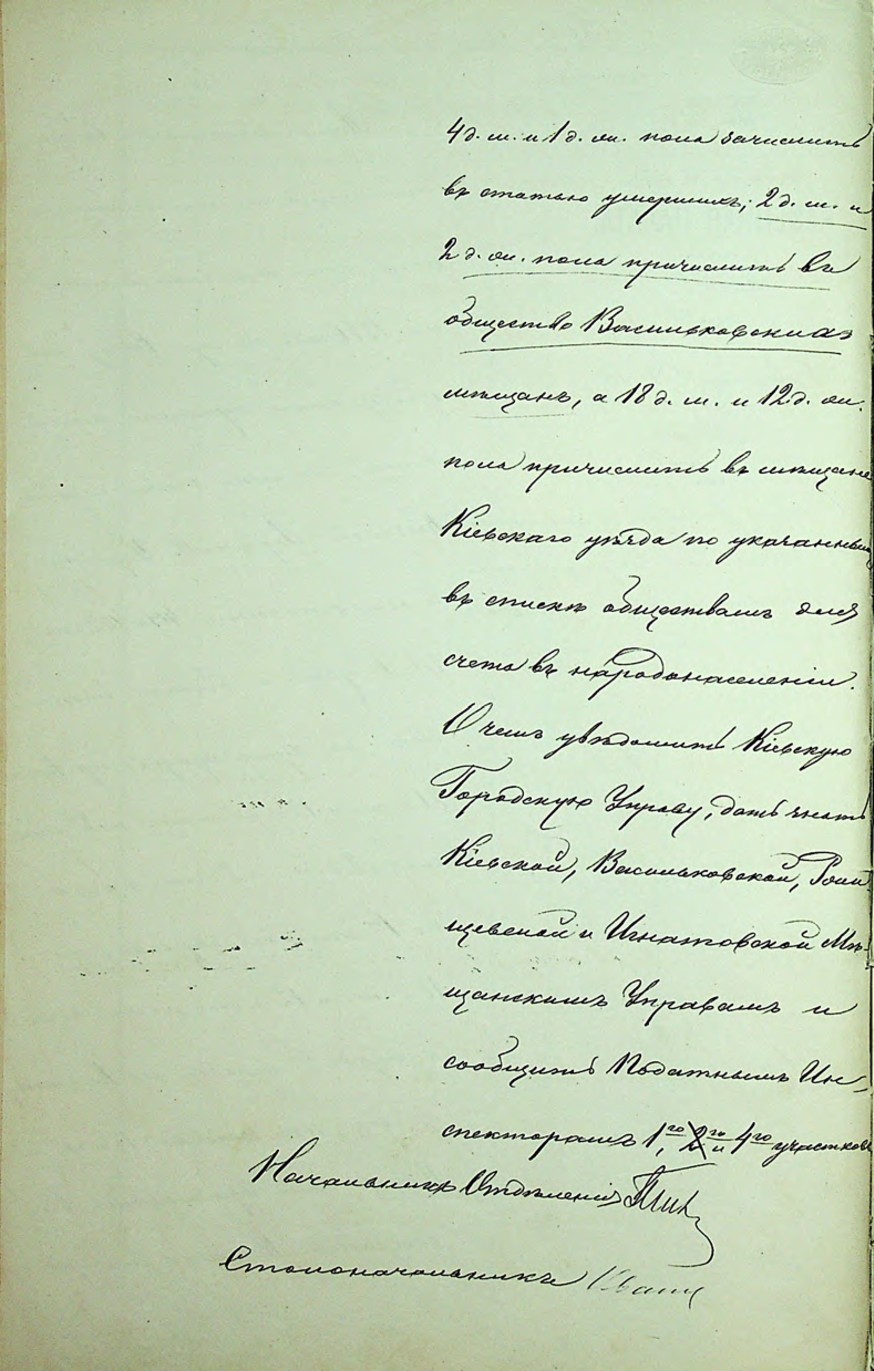 4 д. м. и 1 д. ж. пола зачислить
въ статью умершихъ; 2 д. м. и
2 д. ж. пола причислить въ
общество Васильковскихъ
мѣщанъ, а 18 д. м. и 12 д. ж.
пола причислить въ мѣщане
Кіевскаго уѣзда по указаннымъ
въ спискѣ обществамъ для
счета въ народонаселеніи.
О чемъ увѣдомить Кіевскую
Городскую Управу, дать знать
Кіевской, Васильковской,
щевской и Игнатовской Мѣ-
щанскимъ Управамъ и
сообщить Податнымъ Ин-
спекторамъ 1го, 2го и 4го участковъ
Начальникъ Отдѣленія
Столоначальникъ